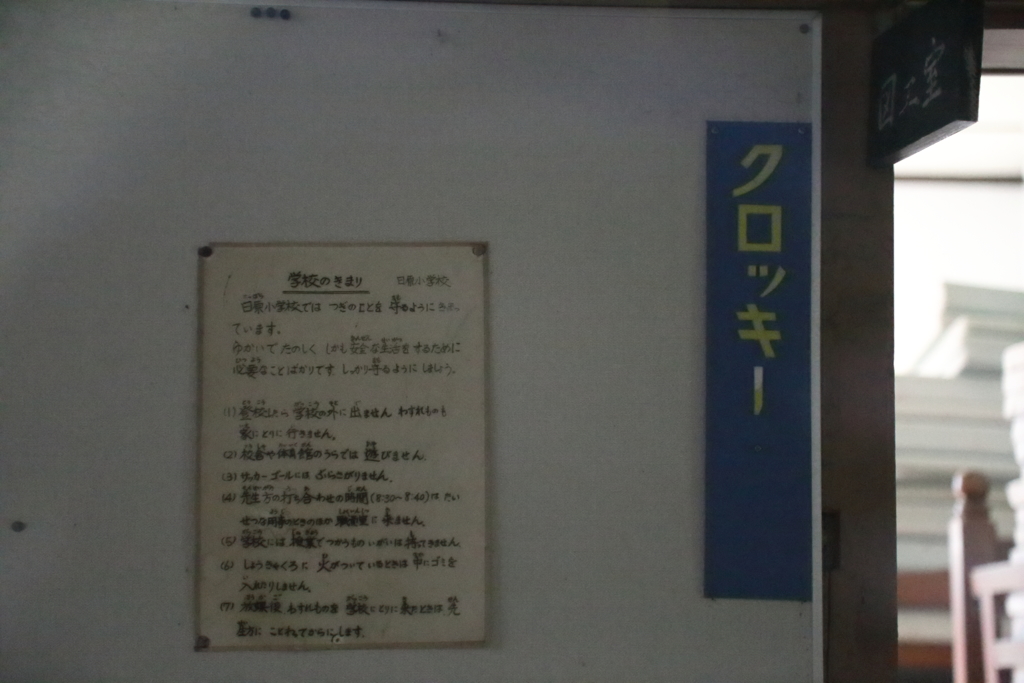 図工室
クロッキー
学校のきまり 日原小学校
日原小学校では つぎのことを 守るように
ています。
ゆかいで たのしく しかも 安全な生活を するために
必要なことばかりです。しっかり守るように しましょう。
(1) 登校したら 学校の外に 出ません。わすれものも
家に とりに 行きません。
(2) 校舎や体育館のうらでは 遊びません。
(3) サッカーゴールには ぶらさがりません。
(4) 先生方の打ち合わせの時間(8:30~8:40)は たい
せつな用事のときのほか 職員室に 来ません。
(5) 学校には 授業でつかうもの いがいは 持ってきません。
(6) しょうきゃくろに 火がついているときは 中にゴミを
入れたりしません。
(7) 放課後 わすれものを 学校にとりに来たときは 先
生方に ことわってからにします。